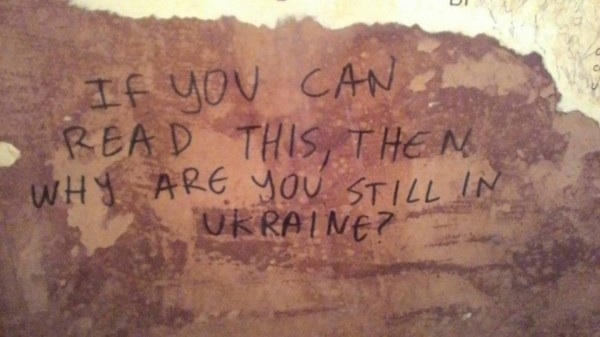 IF YOU CAN
READ THIS, THEN
WHY ARE YOU STILL IN
UKRAINE?